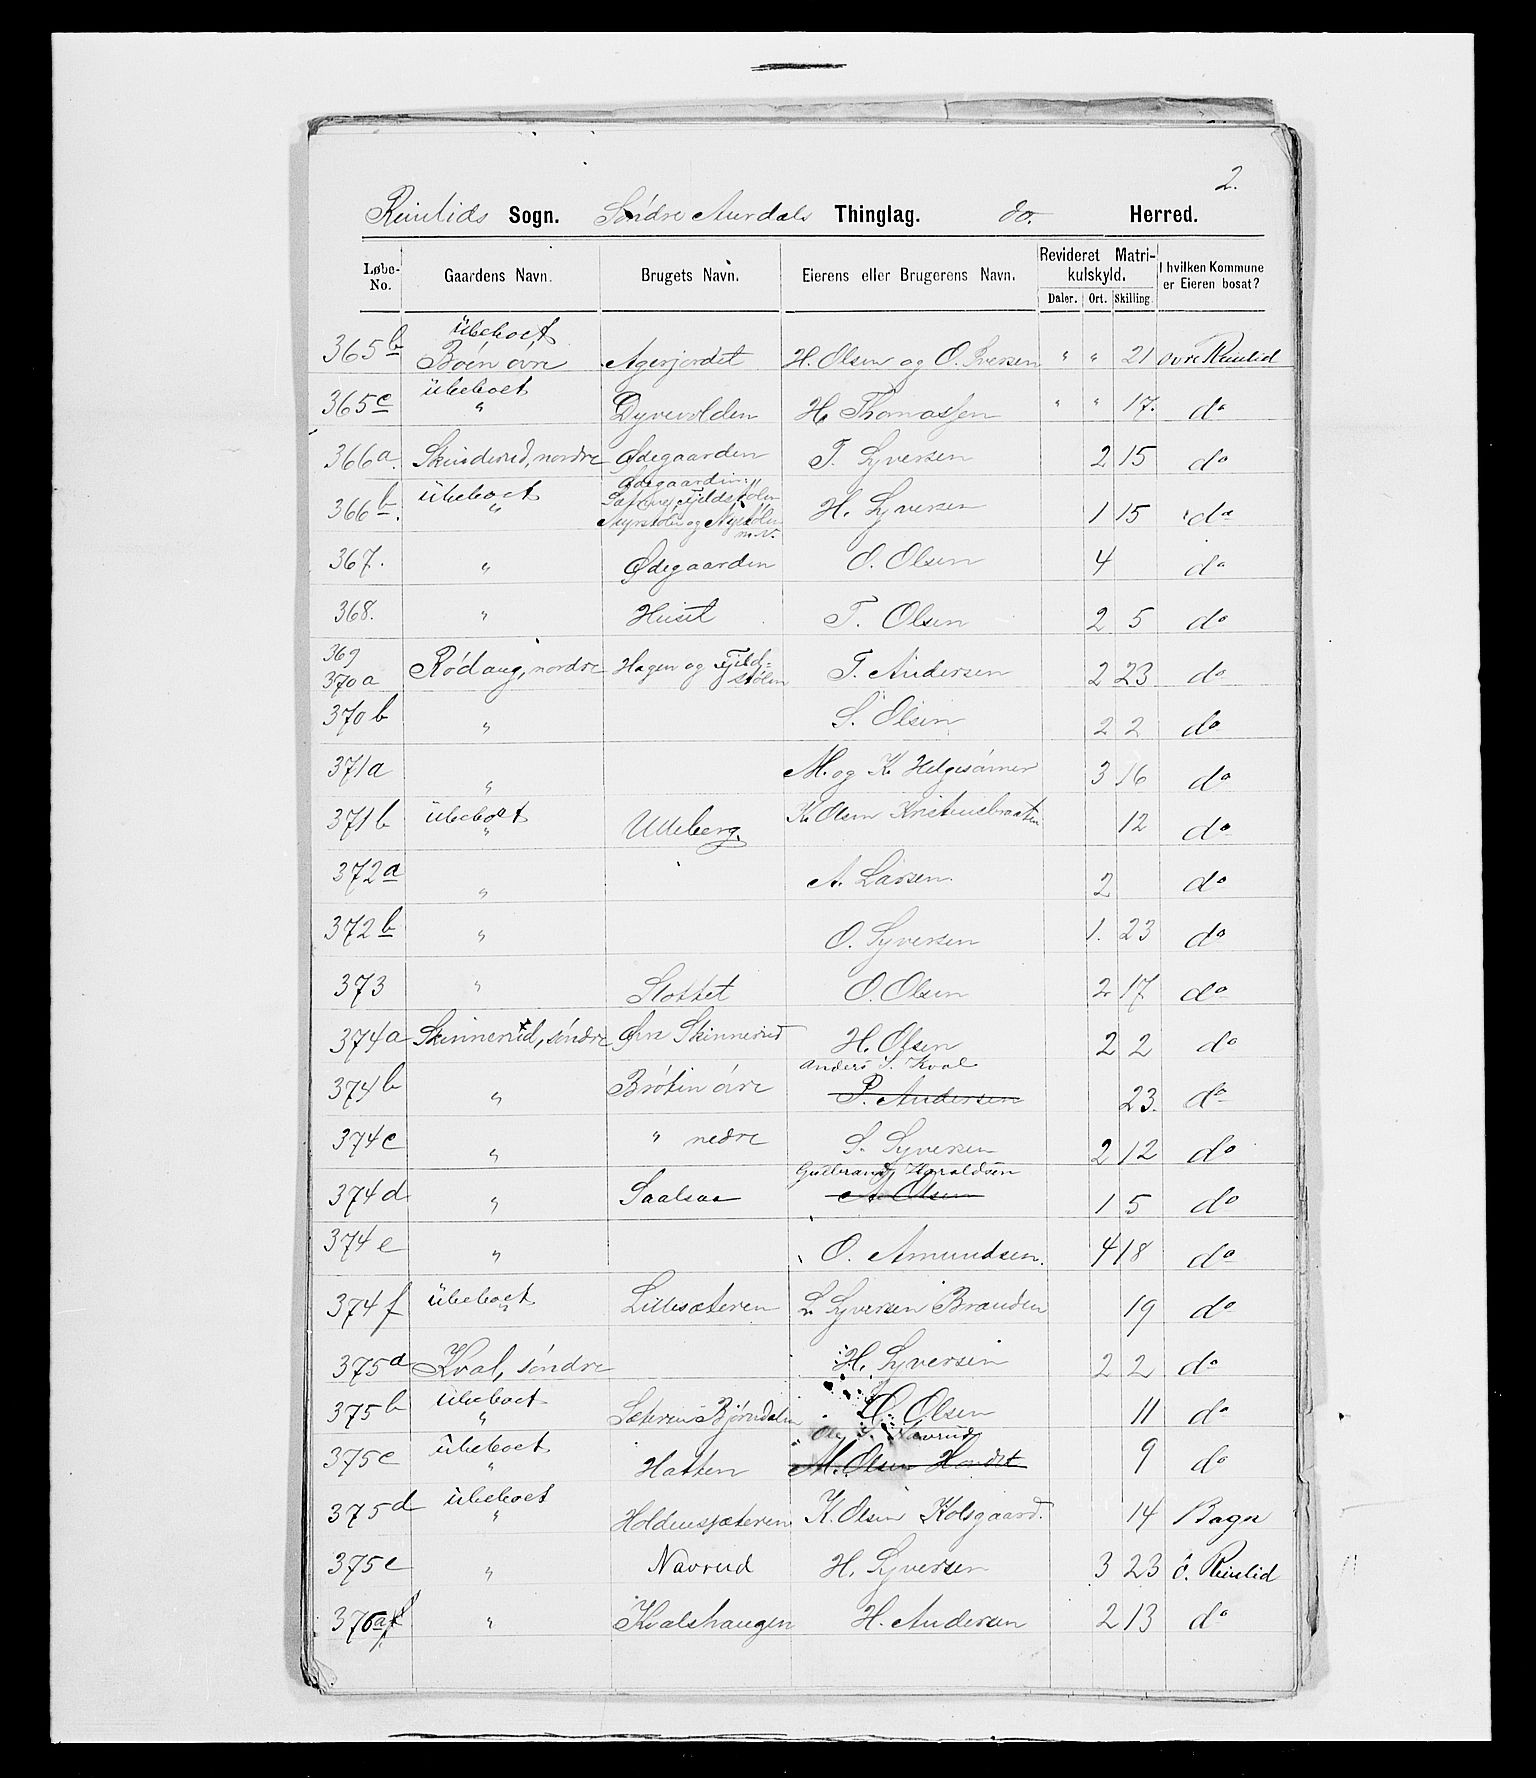 2.
Reinlids Sogn. Søndre Aurdals Thinglag. do. Herred.
Løbe-No. Gaardens Navn. Brugets Navn. Eierens eller Brugerens Navn. Revideret Matrikulskyld. I hvilken Kommune er Eieren bosat?
Daler. Ort. Skilling.
ubeboet
365b Bøen øvre Agerjordet H. Olsen og O. Iversen " " 21 øvre Reinlid
ubeboet
365c " Dyrevolden H. Thomassen " " 17. do
366a. Skinderud, nordre Ødegaarden T. Syversen 2 15 do
366b. ubeboet " Ødegaarden: Fjeldstølen Myrstølen og Nystølen m.v. H. Syversen 1 15 do
367. " Ødegaarden O. Olsen 4 do
368. " Huset T. Olsen 2 5 do
369
370a Rødaug, nordre Hagen og Fjeldstølen T. Andersen 2 23 do
370b " S. Olsen 2 2 do
371a " M. og K. Helgesønner 3 16 do
371b ubeboet " Udeberg. K. Olsen Kristensbraaten 12 do
372a " A. Larsen. 2 do
372b " O. Syversen 1. 23 do
373 " Slottet O. Olsen 2 17 do
374a Skinnerud, søndre Øvre Skinnerud H. Olsen 2 2 do
Anders S. Kval
374b " Brøtin øvre P. Andersen 23. do
374c " " nedre S. Syversen 2 12 do
Gulbrand Haraldsen
374d " Saalsaa A. Olsen 1 5 do
374e " O. Amundsen. 4 18 do
374f ubeboet " Lillesæteren L. Syversen Branden 19 do
375a Kval, søndre H. Syversen 2 2 do
375b ubeboet " Sæteren Bjørndalen O. Olsen 11 do
Ole S. Navrud
375c ubeboet " Hatten M. Olsen 9 do
375d ubeboet " Holdenssæteren K. Olsen Kolsgaard. 14 Bagn
375e " Navrud H. Syversen 3 23 ö. Reinlid
376a " Kvalshaugen H. Andersen 2 13 do